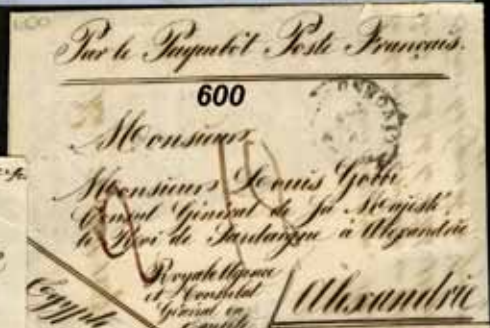 Par le Paquebôt Poste Français.
600
Monsieur
Monsieur Louis
Consul Général de Sa Majesté
le Roi de Sardaigne à Alexandrie
Royale Agence
et Consulat
Général en
Egypte
Alexandrie